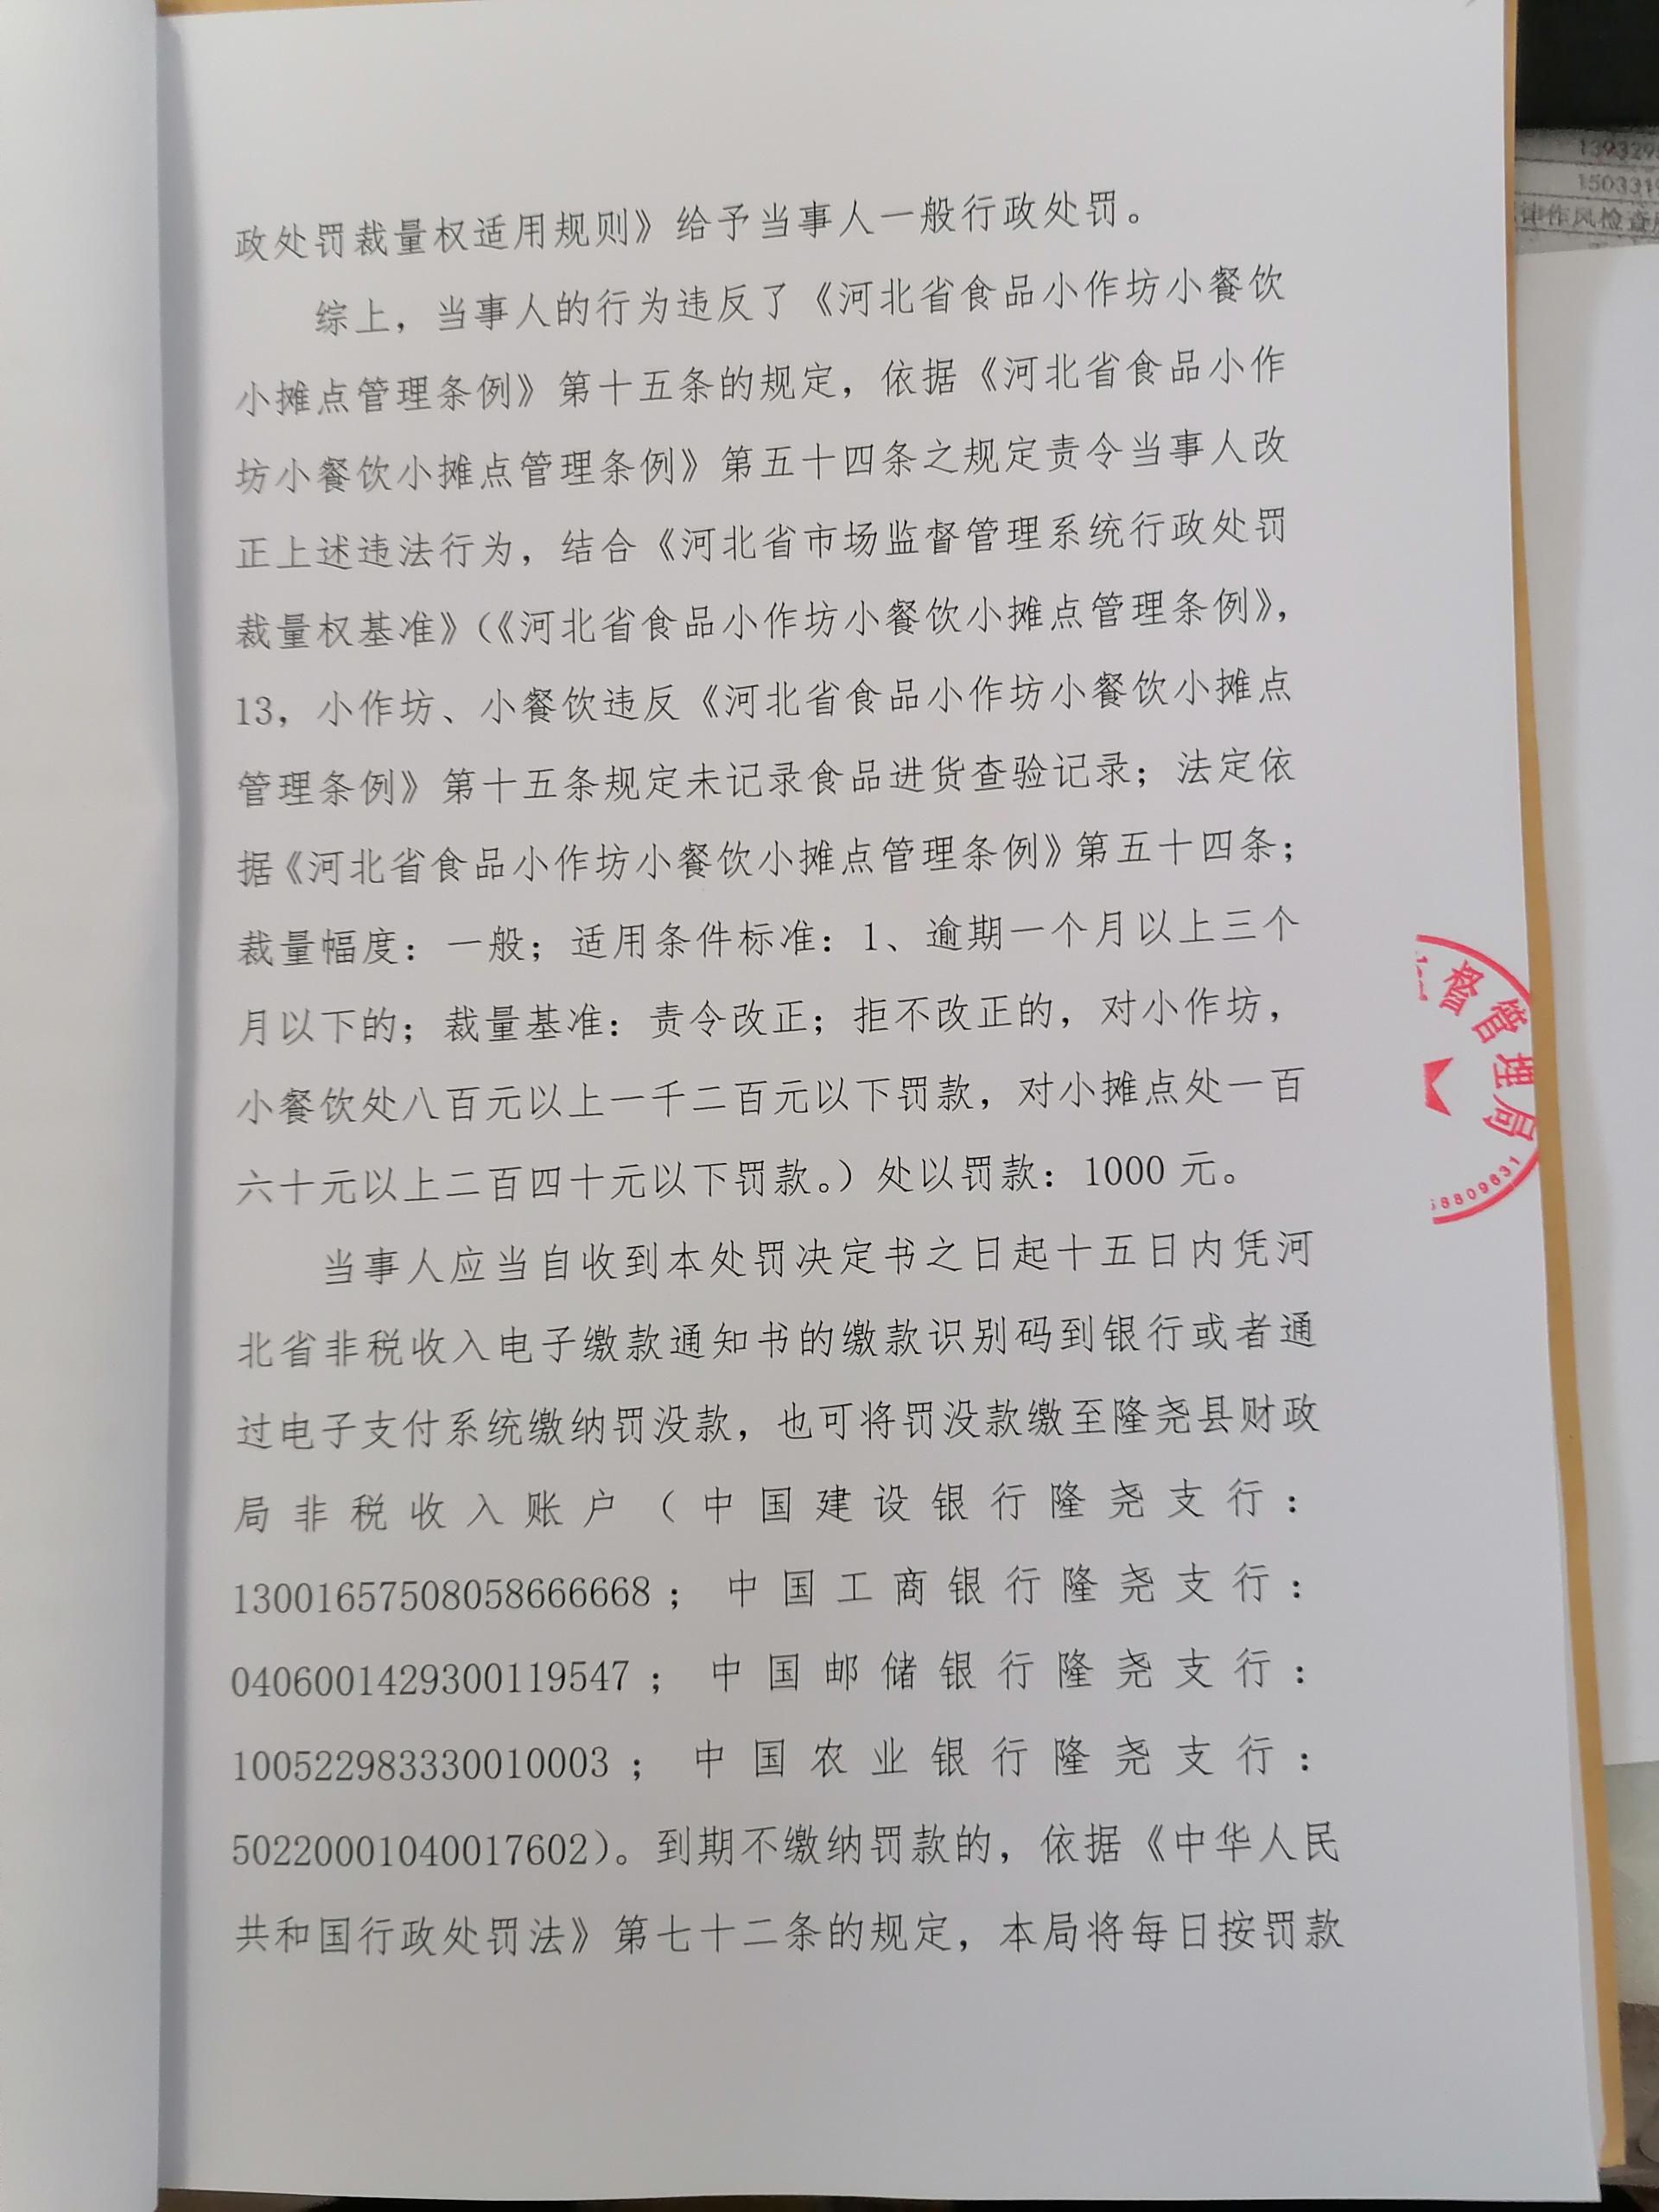 政处罚裁量权适用规则》给予当事人一般行政处罚。
综上，当事人的行为违反了《河北省食品小作坊小餐饮
小摊点管理条例》第十五条的规定，依据《河北省食品小作
坊小餐饮小摊点管理条例》第五十四条之规定责令当事人改
正上述违法行为，结合《河北省市场监督管理系统行政处罚
裁量权基准》（《河北省食品小作坊小餐饮小摊点管理条例》，
13，小作坊、小餐饮违反《河北省食品小作坊小餐饮小摊点
管理条例》第十五条规定未记录食品进货查验记录；法定依
据《河北省食品小作坊小餐饮小摊点管理条例》第五十四条；
裁量幅度：一般；适用条件标准：1、逾期一个月以上三个
月以下的；裁量基准：责令改正；拒不改正的，对小作坊，
小餐饮处八百元以上一千二百元以下罚款，对小摊点处一百
六十元以上二百四十元以下罚款。）处以罚款：1000 元。
当事人应当自收到本处罚决定书之日起十五日内凭河
北省非税收入电子缴款通知书的缴款识别码到银行或者通
过电子支付系统缴纳罚没款，也可将罚没款缴至隆尧县财政
局非税收入账户（中国建设银行隆尧支行：
13001657508058666668；中国工商银行隆尧支行：
0406001429300119547；中国邮储银行隆尧支行：
100522983330010003；中国农业银行隆尧支行：
50220001040017602）。到期不缴纳罚款的，依据《中华人民
共和国行政处罚法》第七十二条的规定，本局将每日按罚款
督管理局
8809631
139329
150331
律作风检查